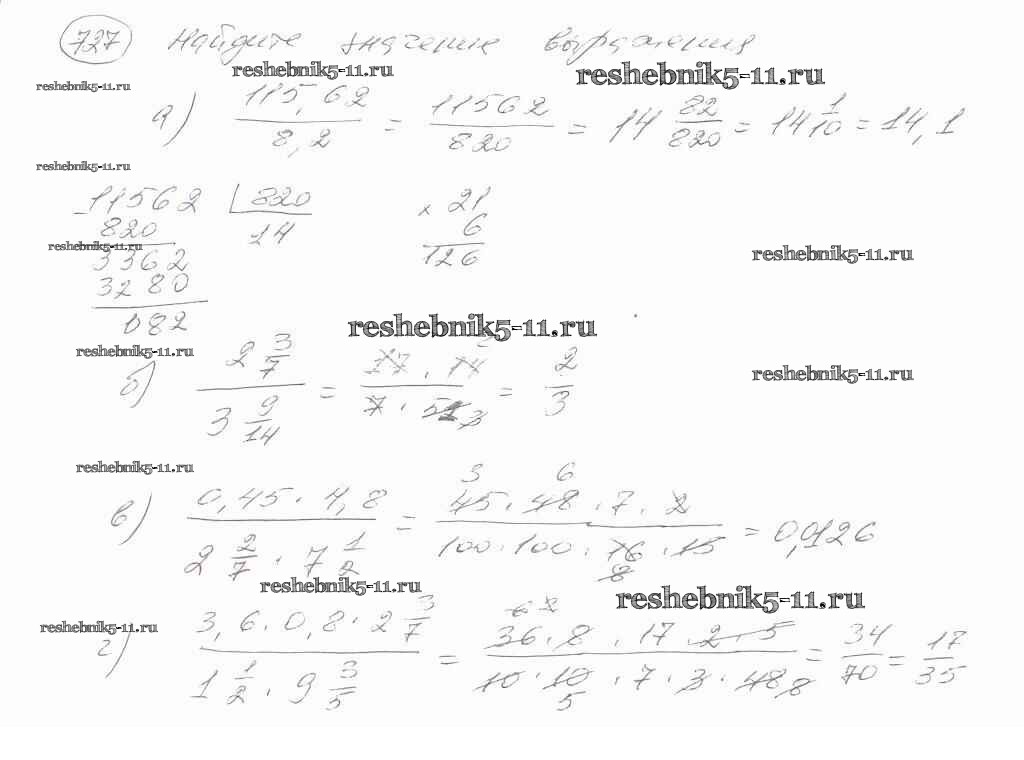 727 Найдите значение выражения
reshebnik5-11.ru reshebnik5-11.ru reshebnik5-11.ru
а) 115,62 / 8,2 = 11562 / 820 = 14 82/820 = 14 1/10 = 14,1
reshebnik5-11.ru
11562 | 820 × 21
820 14 6
reshebnik5-11.ru 126 reshebnik5-11.ru
3362
3280
082
reshebnik5-11.ru
reshebnik5-11.ru reshebnik5-11.ru
б) 2 3/7 / 3 9/14 = 17 · 14 / 7 · 51 3 = 2/3
reshebnik5-11.ru
3 6
в) 0,45 · 4,8 / 2 2/7 · 7 1/2 = 45 · 48 · 7 · 2 / 100 · 100 · 16 · 15 = 0,126
8
reshebnik5-11.ru reshebnik5-11.ru
reshebnik5-11.ru
г) 3,6 · 0,8 · 2 3/7 / 1 1/2 · 9 3/5 = 36 · 8 · 17 · 2 · 5 / 10 · 10 · 7 · 3 · 48 8 = 34/70 = 17/35
5